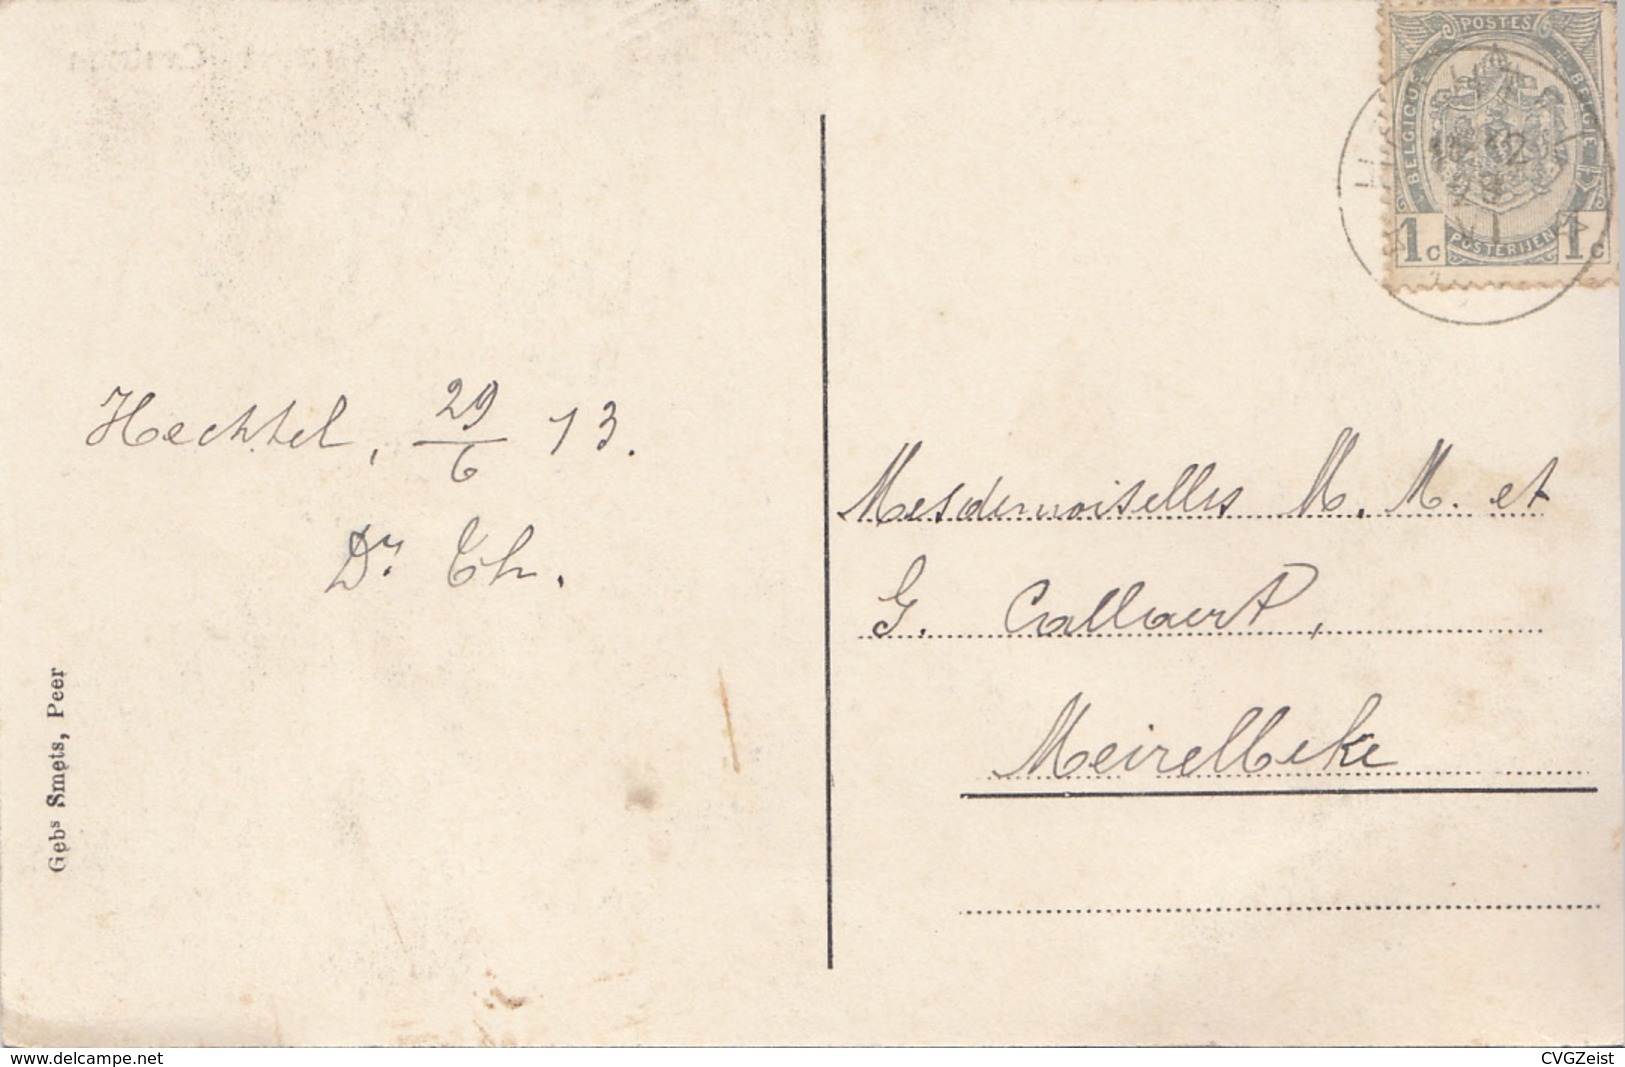 POSTES
BELGIQUE
BELGIË
POSTERIJEN
1c
1c
Hechtel, 29/6 13.
Dr Ch.
Mesdemoiselles M. M. et
G. Callaert,
Meirelbeke
Gebs Smets, Peer
www.delcampe.net
CVGZeist